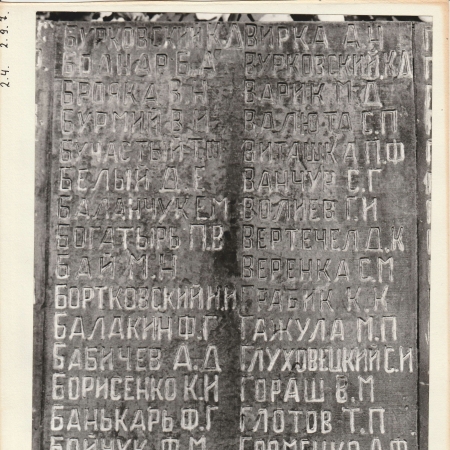 2.4. 2.9.7.
БУРКОВСКИЙ К.А
БОДНАР Е.А
БРОЯКА З.Н
БУРМИЙ В.И
БУЧАСТЫЙ П.М
БЕЛЫЙ Д.Е
БАЛАНЧУК Е.М
БОГАТЫРЬ П.В
БАЙ М.Н
БОРТКОВСКИЙ Н.И
БАЛАКИН Ф.Г
БАБИЧЕВ А.Д
БОРИСЕНКО К.И
БАНЬКАРЬ Ф.Г
БОЙЧУК Ф.М
ВИРКА А.Н
ВУРКОВСКИЙ К.Д
ВАРИК М.Д
ВАЛЮТА С.П
ВИТАШКА П.Ф
ВАНЧУР С.Г
ВОЛИЕВ Г.И
ВЕРТЕЧЕЛ Д.К
ВЕРЕНКА С.М
ГРАБИК К.К
ГАЖУЛА М.П
ГЛУХОВЕЦКИЙ С.И
ГОРАШ В.М
ГЛОТОВ Т.П